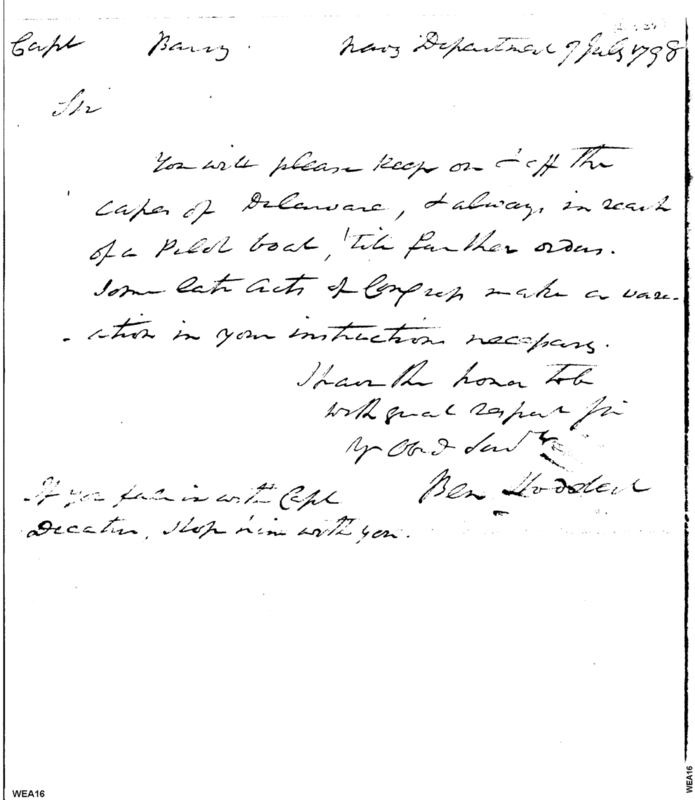 Capt Barry. Navy Department 7 July 1798
Sir
You will please keep on & off the
capes of Delaware, & always in reach
of a Pilot boat, 'till further orders.
Some late Acts of Congress make a vari-
-ation in your instructions necessary.
I have the honor to be
with great respect Sir
Yr Obed Servt
Ben Stoddert
If you fall in with Capt
Decatur, stop him with you.
WEA16
WEA16